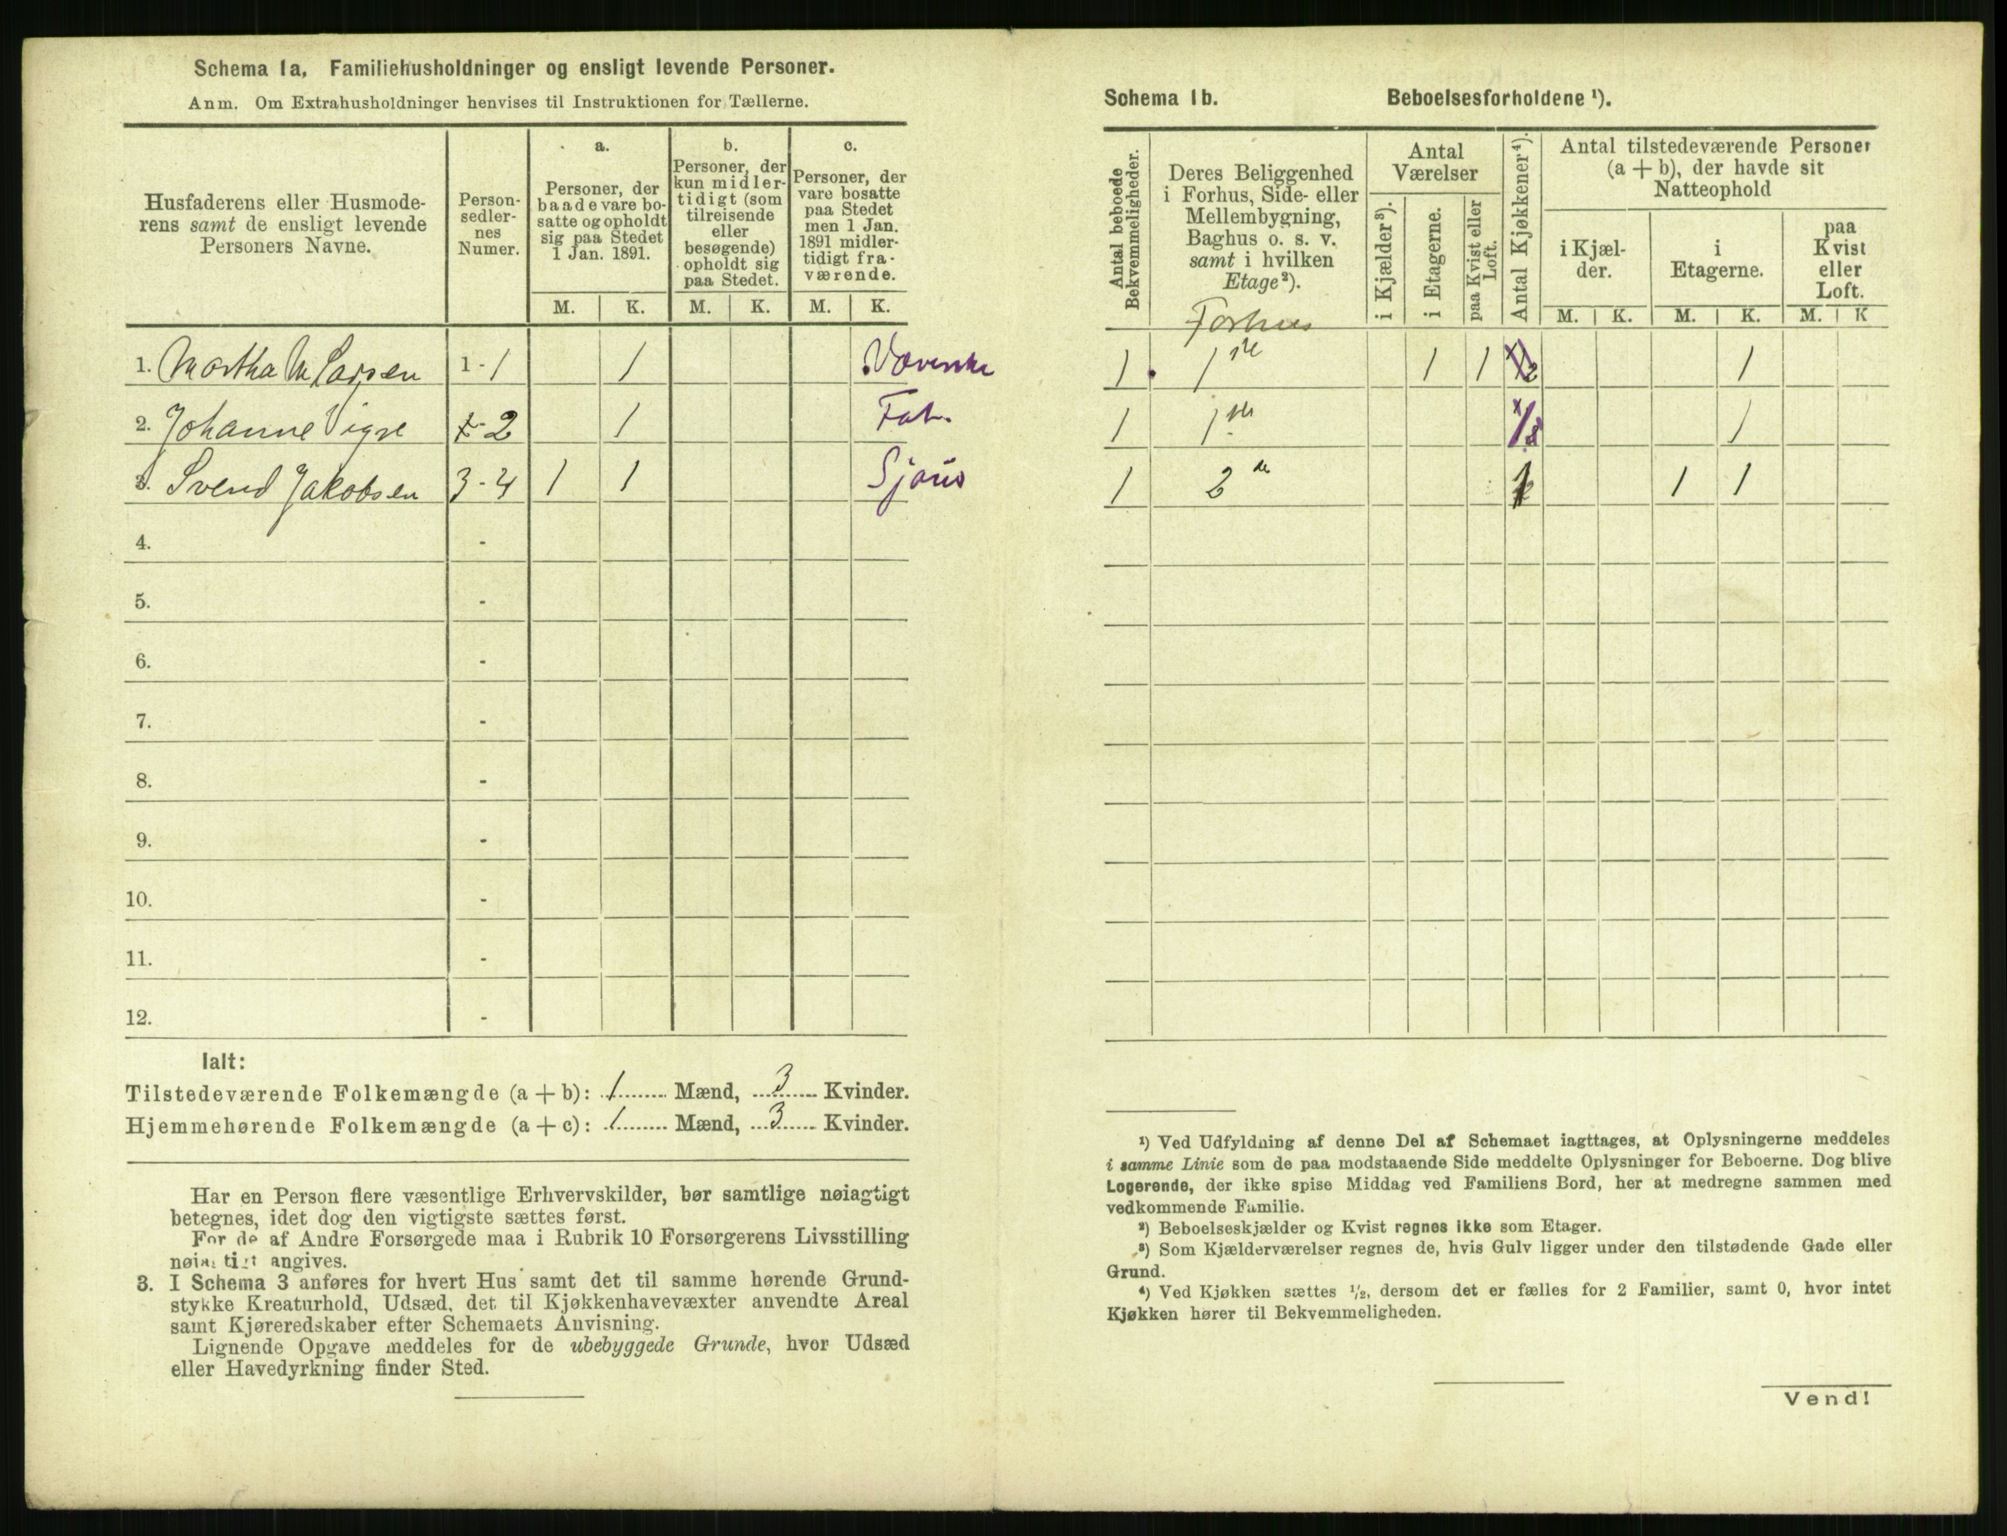 Schema 1a. Familiehusholdninger og ensligt levende Personer.
Anm. Om Extrahusholdninger henvises til Instruktionen for Tællerne.
Husfaderens eller Husmode-
rens samt de ensligt levende
Personers Navne.
Person-
sedler-
nes
Numer.
a.
Personer, der
baade vare bo-
satte og opholdt
sig paa Stedet
1 Jan. 1891.
b.
Personer, der
kun midler-
tidigt (som
tilreisende
eller
besøgende)
opholdt sig
paa Stedet.
c.
Personer, der
vare bosatte
paa Stedet
men 1 Jan.
1891 midler-
tidigt fra-
værende.
M. K. M. K. M. K.
1. Martha M Larsen 1 - 1 1 Væverske
2. Johanne Vigre 2 1 Fat.
3. Svend Jakobsen 3 - 4 1 1 Sjaus
4. -
5. -
6. -
7. -
8. -
9. -
10. -
11. -
12. -
Ialt:
Tilstedeværende Folkemængde (a + b): 1 Mænd, 3 Kvinder.
Hjemmehørende Folkemængde (a + c): 1 Mænd, 3 Kvinder.
Har en Person flere væsentlige Erhvervskilder, bør samtlige nøiagtigt
betegnes, idet dog den vigtigste sættes først.
For de af Andre Forsørgede maa i Rubrik 10 Forsørgerens Livsstilling
nøiagtigt angives.
3. I Schema 3 anføres for hvert Hus samt det til samme hørende Grund-
stykke Kreaturhold, Udsæd, det til Kjøkkenhavevæxter anvendte Areal
samt Kjøreredskaber efter Schemaets Anvisning.
Lignende Opgave meddeles for de ubebyggede Grunde, hvor Udsæd
eller Havedyrkning finder Sted.
Schema 1b. Beboelsesforholdene ¹).
Antal beboede
Bekvemmeligheder.
Deres Beliggenhed
i Forhus, Side- eller
Mellembygning,
Baghus o. s. v.
samt i hvilken
Etage²).
Antal
Værelser
i Kjælder³).
i Etagerne.
paa Kvist eller
Loft.
Antal Kjøkkener⁴).
Antal tilstedeværende Personer
(a + b), der havde sit
Natteophold
i Kjæl-
der.
i
Etagerne.
paa
Kvist
eller
Loft.
M. K. M. K. M. K
Forhus
1 1ste 1 1 1/2 1
1 1ste 1
1 2de 1 1 1
¹) Ved Udfyldning af denne Del af Schemaet iagttages, at Oplysningerne meddeles
i samme Linie som de paa modstaaende Side meddelte Oplysninger for Beboerne. Dog blive
Logerende, der ikke spise Middag ved Familiens Bord, her at medregne sammen med
vedkommende Familie.
²) Beboelseskjælder og Kvist regnes ikke som Etager.
³) Som Kjælderværelser regnes de, hvis Gulv ligger under den tilstødende Gade eller
Grund.
⁴) Ved Kjøkken sættes ¹/₂, dersom det er fælles for 2 Familier, samt 0, hvor intet
Kjøkken hører til Bekvemmeligheden.
Vend!